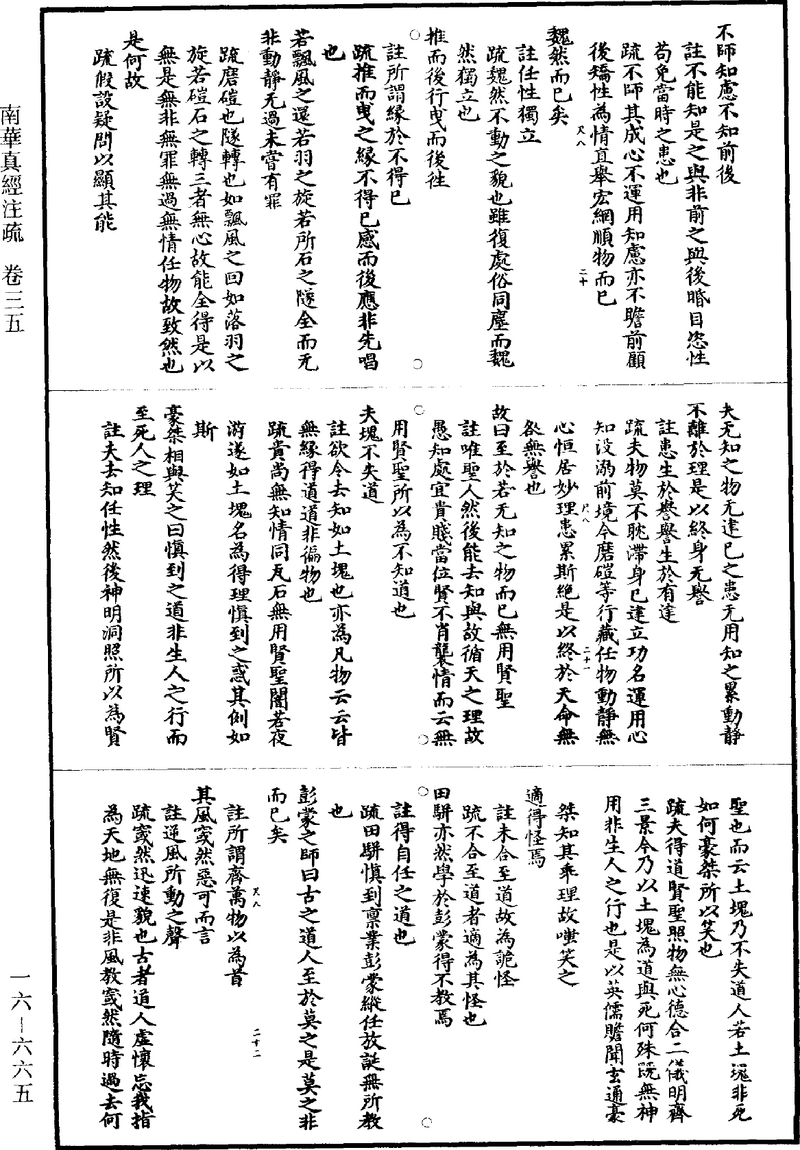 不師知慮不知前後
註不能知是之與非前之與後睧目恣性
苟免當時之患也
疏不師其成心不運用知慮亦不瞻前顧
後矯性為情直舉宏綱順物而已
尺八
二十
魏然而已矣
註任性獨立
疏魏然不動之貌也雖復處俗同塵而魏
然獨立也
推而後行曳而後往
註所謂緣於不得已
疏推而曳之緣不得已感而後應非先唱
也
若飄風之還若羽之旋若所石之隧全而无
非動靜无過未嘗有罪
疏磨磑也隧轉也如飄風之回如落羽之
旋若磑石之轉三者無心故能全得是以
無是無非無罪無過無情任物故致然也
是何故
疏假設疑問以顯其能
夫无知之物无建已之患无用知之累動靜
不離於理是以終身无譽
註患生於譽譽生於有建
疏夫物莫不耽滯身已建立功名運用心
知没溺前境今磨磑等行藏任物動靜無
尺八
二十一
心恒居妙理患累斯絕是以終於天命無
咎無譽也
故曰至於若无知之物而已無用賢聖
註唯聖人然後能去知與故循天之理故
愚知處宜貴賤當位賢不肖襲情而云無
用賢聖所以為不知道也
夫塊不失道
註欲令去知如土塊也亦為凡物云云皆
無緣得道道非徧物也
疏貴尚無知情同瓦石無用賢聖闇若夜
游遂如土塊名為得理慎到之惑其例如
斯
豪桀相與笑之曰慎到之道非生人之行而
至死人之理
註夫去知任性然後神明洞照所以為賢
聖也而云土塊乃不失道人若土塊非死
如何豪桀所以笑也
疏夫得道賢聖照物無心德合二儀明齊
三景今乃以土塊為道與死何殊既無神
用非生人之行也是以英儒贍聞玄通豪
桀知其乖理故嗤笑之
適得怪焉
註未合至道故為詭怪
疏不合至道者適為其怪也
田駢亦然學於彭蒙得不教焉
註得自任之道也
疏田駢慎到禀業彭蒙縱任放誕無所教
也
彭蒙之師曰古之道人至於莫之是莫之非
而已矣
註所謂齊萬物以為首
尺八
二十二
其風窢然惡可而言
註逆風所動之聲
疏窢然迅速貌也古者道人虛懷忘我指
為天地無復是非風教窢然隨時過去何
南華真經注疏 卷三五
一六—六六五